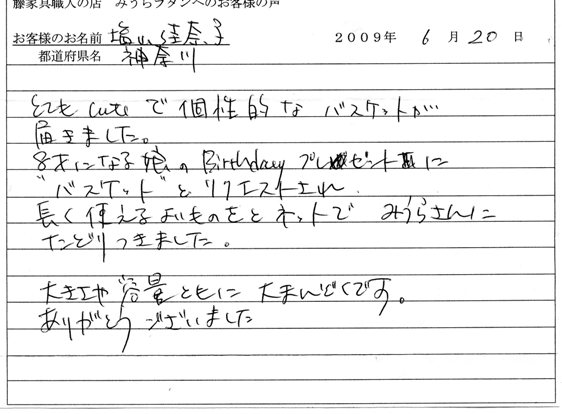 藤家具職人の店 みうらラタンへのお客様の声
お客様のお名前 塩山 佳奈子 2009年 6月 20日
都道府県名 神奈川
とても cute で個性的な バスケットが
届きました。
8才になる娘の Birthday プレゼントに
"バスケット" とリクエストされ
長く使えるよいものをと ネットで みうらさんに
たどりつきました。
大きさや 容量ともに 大まんぞくです。
ありがとう ございました